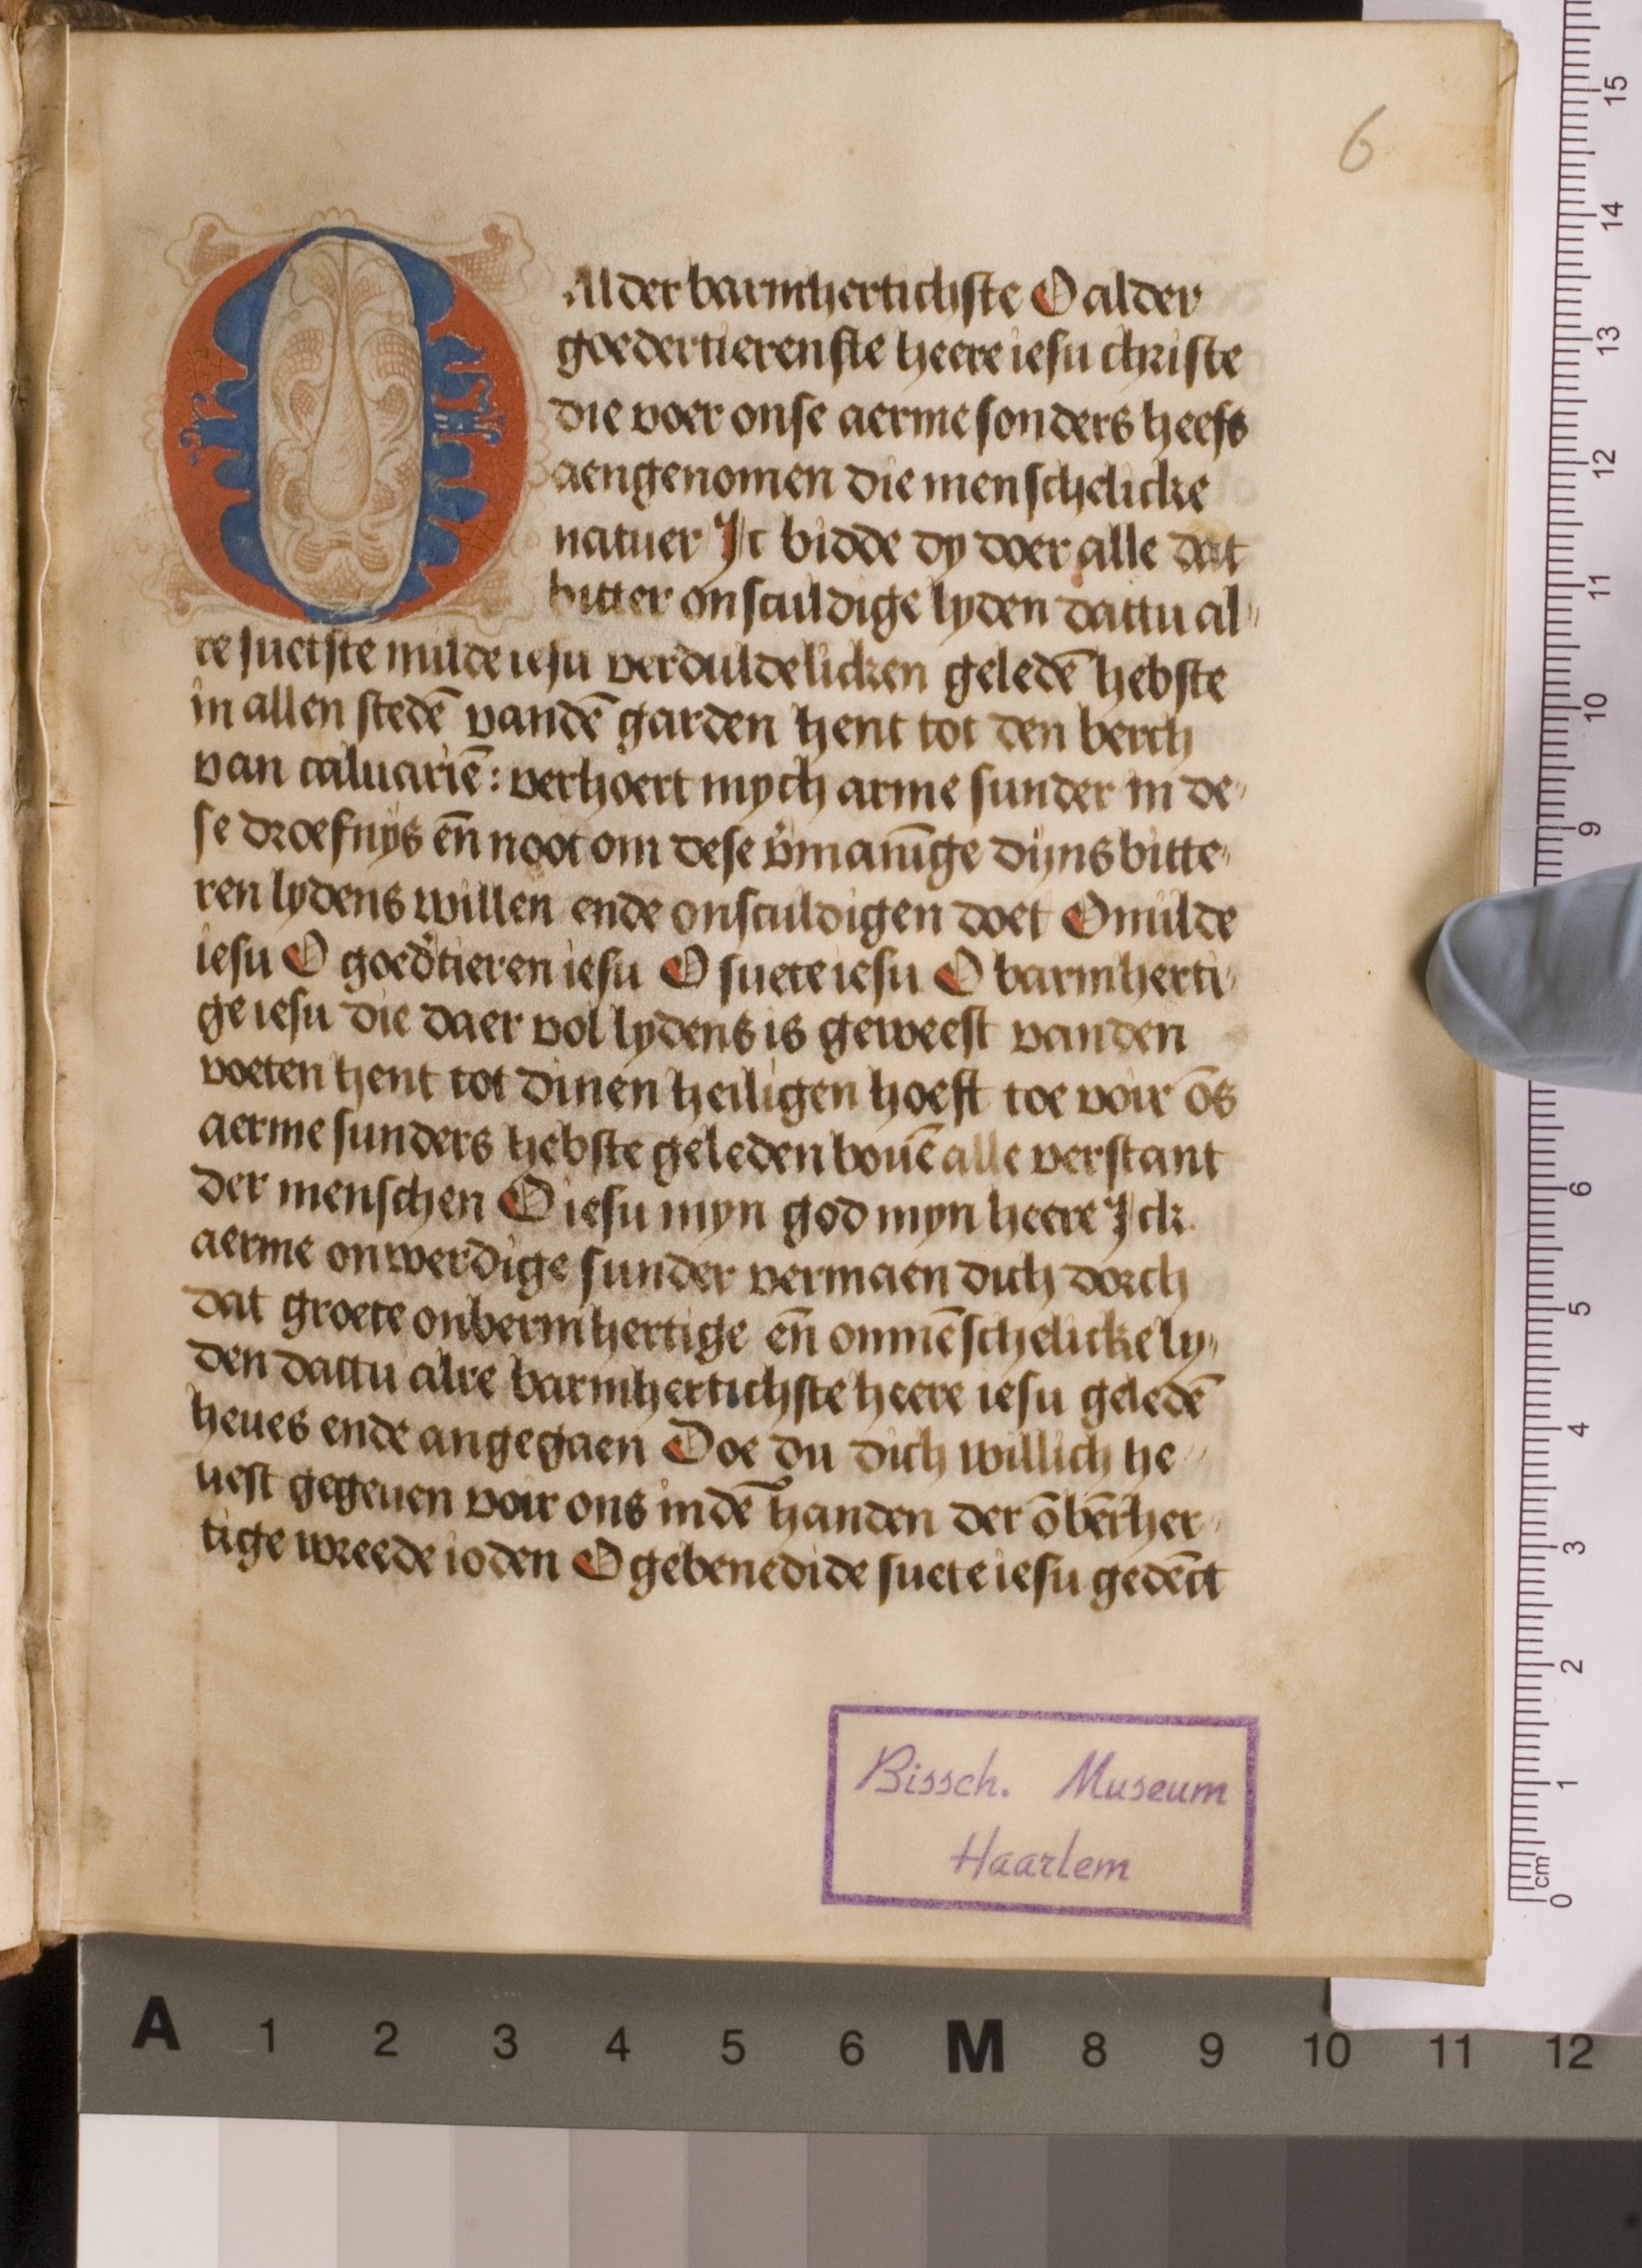 6
O Alder barmhertichste O alder
goedertierenste heere iesu christe
die voer onse aerme sonders heefs
aengenomen die menschelicke
natuer Jc bidde dy doer alle dat
bitter onsculdige lyden dattu al
re suetste milde iesu verduldelicken geledē hebste
in allen stedē vandē garden hent tot den berch
van caluariē: verhoert mych arme sunder in de
se droefnys eñ noot om dese v̓manīge dijns bitte
ren lydens willen ende onsculdigen doet O milde
iesu O goed̓tieren iesu O suete iesu O barmherti
ge iesu die daer vol lydens is geweest vanden
voeten hent tot dinen heiligen hoeft toe voir ōs
aerme sunders hebste geleden bouē alle verstant
der menschen O iesu myn god myn heere Jck
aerme onwerdige sunder vermaen dich dorch
dat groete onbermhertige eñ onmēschelicke ly
den dattu alre barmhertichste heere iesu geledē
heues ende angegaen Doe du dich willich he
uest gegeuen voir ons indē handen der ōbērher
tige wreede ioden O gebenedide suete iesu gedēct
Bissch. Museum
Haarlem
A 1 2 3 4 5 6 M 8 9 10 11 12
15
14
13
12
11
10
9
6
5
4
3
2
1
cm
0